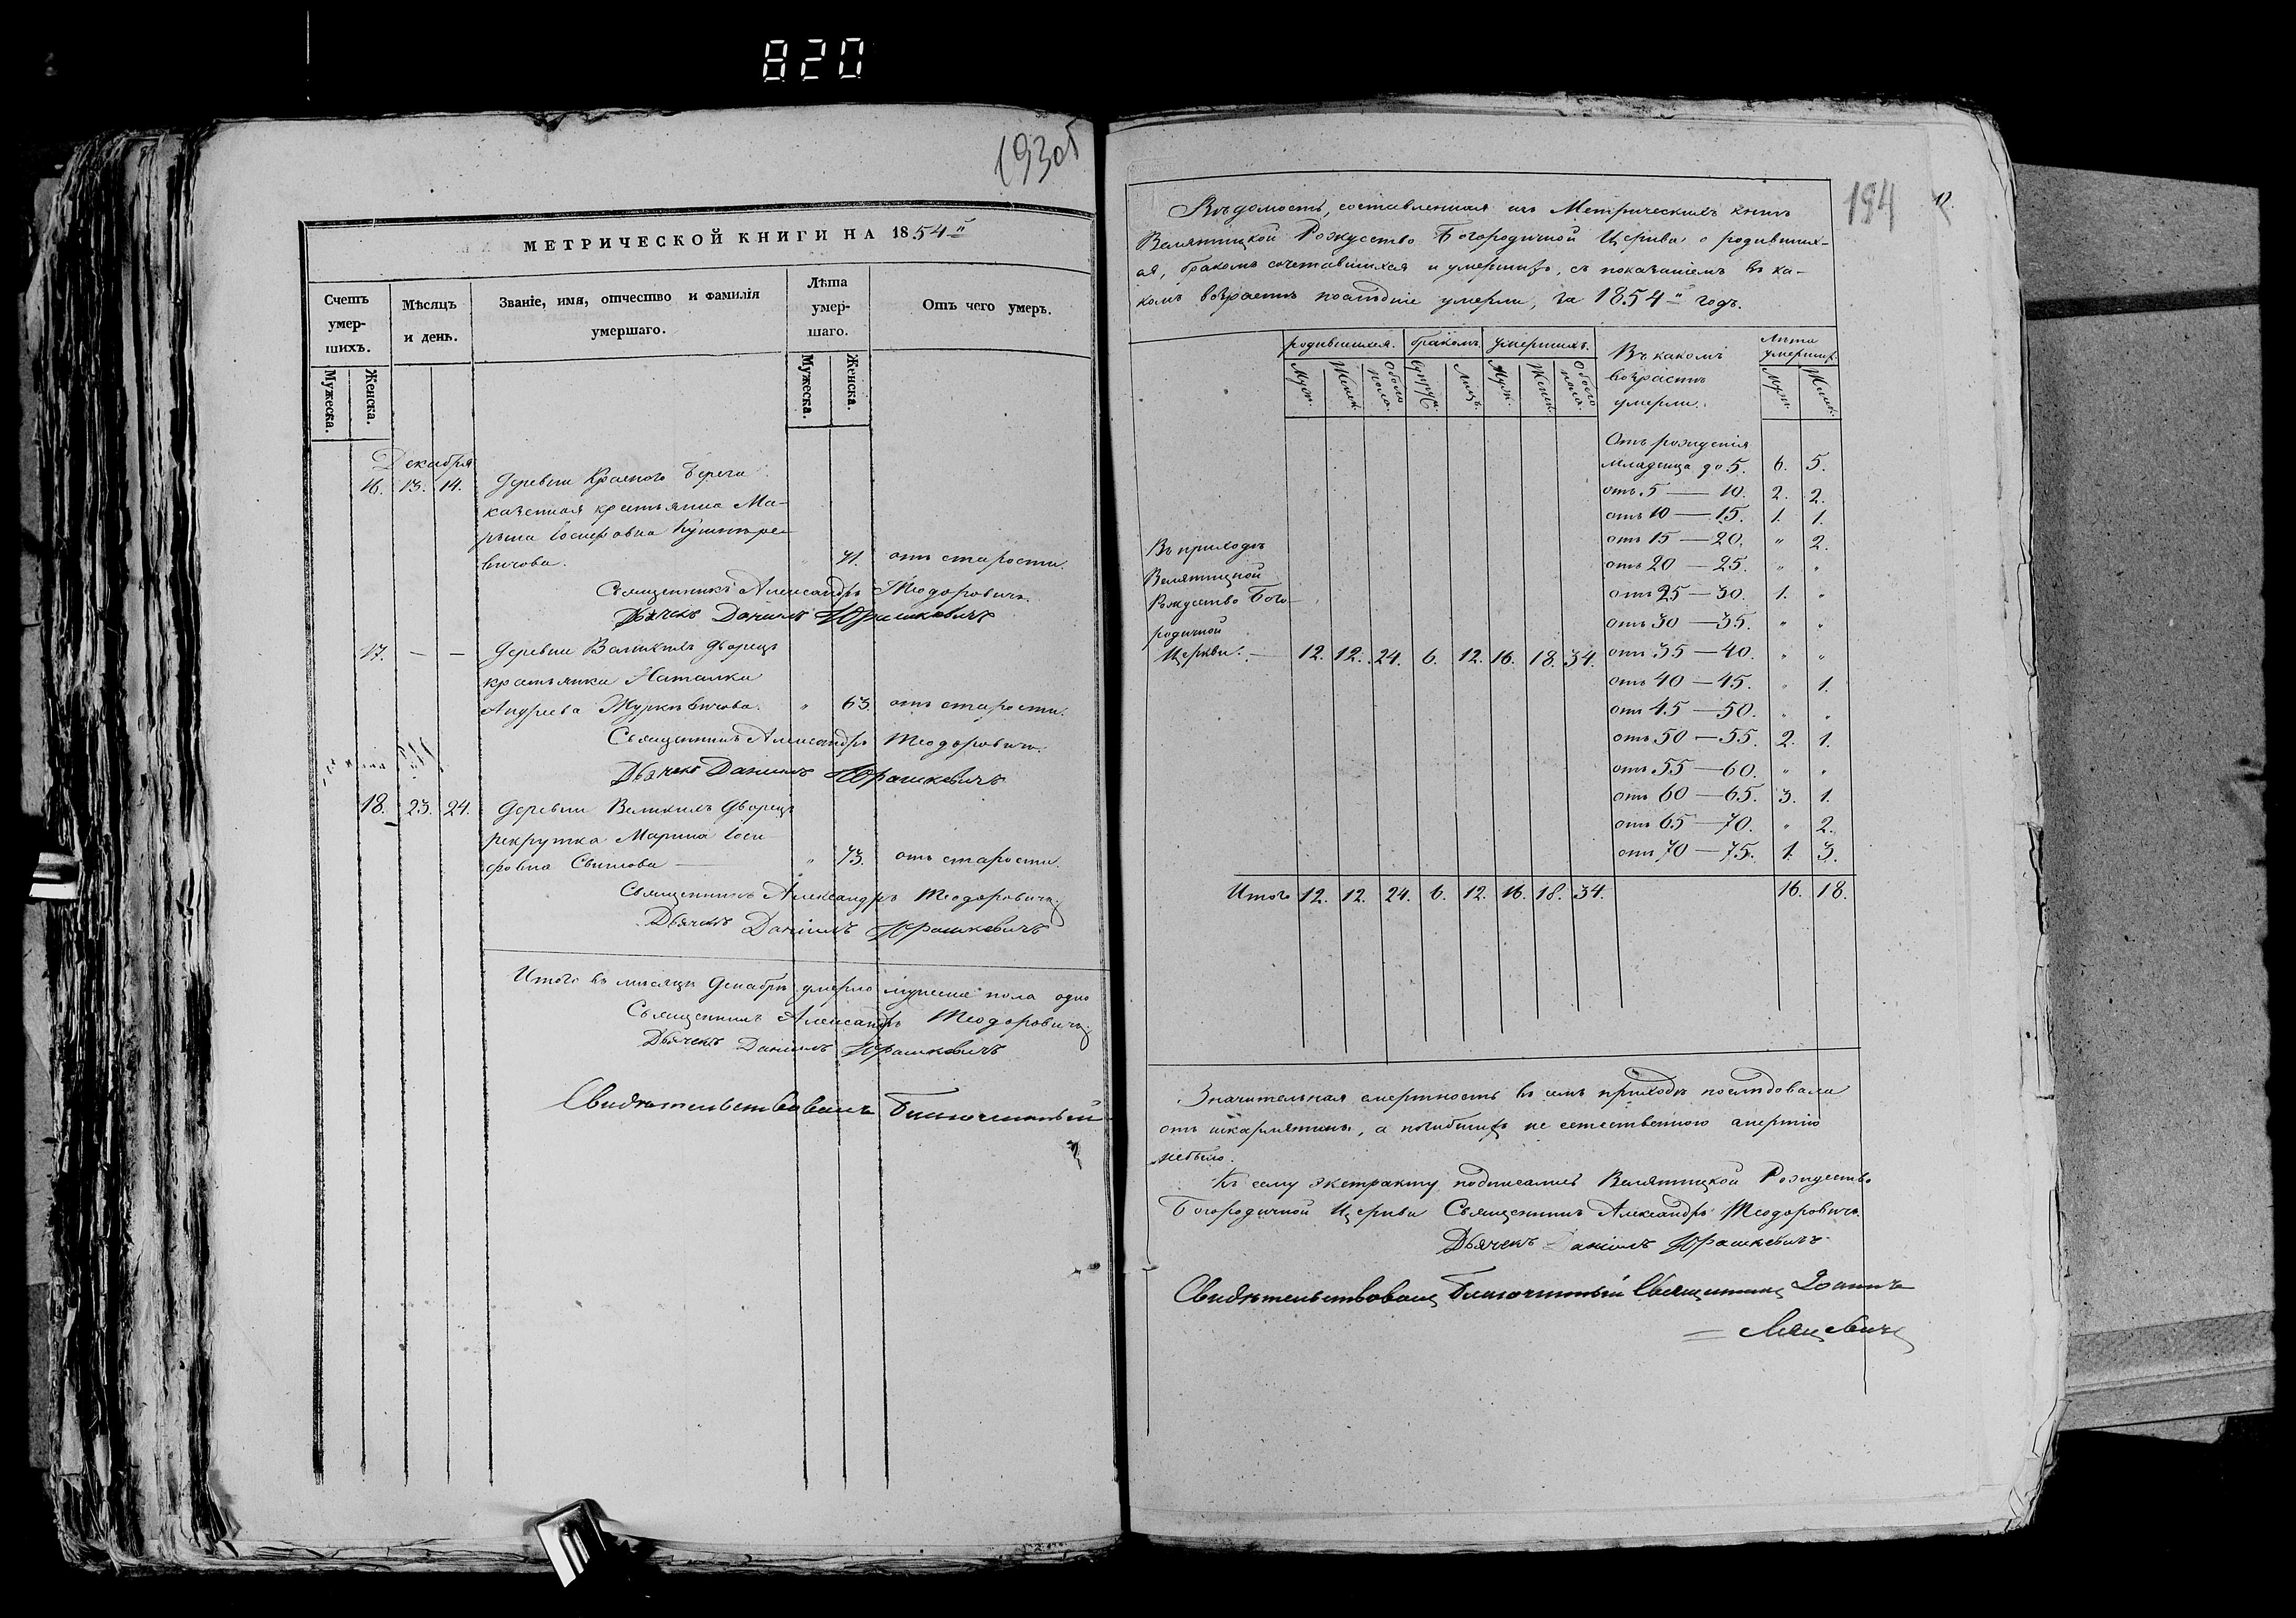 820
193об
МЕТРИЧЕСКОЙ КНИГИ НА 1854й
Счетъ умершихъ.
Мѣсяцъ и день.
Званіе, имя, отчество и фамилія умершаго.
Лѣта умершаго.
Отъ чего умеръ.
Мужеска.
Женска.
Мужеска.
Женска.
Декабря
16. 13. 14. Деревни Красного Берега
казенная крестьянка Ма-
рьяна Іосифовна
71. отъ старости.
Священникъ Александръ Теодоровичъ.
Дьячекъ Даніилъ Юрашкевичъ
17. — — Деревни Великихъ Дворецъ
крестьянка Наталия
Андреева " 63. отъ старости.
Священникъ Александръ Теодоровичъ.
Дьячекъ Даніилъ Юрашкевичъ
18. 23. 24. Деревни Великихъ Дворецъ
рекрутка Марина Іоси-
фовна " 73. отъ старости.
Священникъ Александръ Теодоровичъ
Дьячекъ Даніилъ Юрашкевичъ
Итого въ мѣсяцѣ Декабрѣ умерло пола
Священникъ Александръ Теодоровичъ
Дьячекъ Даніилъ Юрашкевичъ
Свидѣтельствовалъ Благочинный
194
Вѣдомость, составленная изъ Метрическихъ книгъ
Велятицкой Рождество Богородичной Церкви о родивших-
ся, бракомъ сочетавшихся и умершихъ, съ показаніемъ въ ка-
комъ возрастѣ послѣдніе умерли, за 1854й годъ.
родившихся. бракомъ. умершихъ. Въ какомъ возрастѣ умерли. Лѣта умерших.
Муж. Женск. Обоего пола. Супруж. Лицъ. Муж. Женск. Обоего пола. Муж. Женск.
Отъ рожденія
младенца до 5. 6. 5.
отъ 5 — 10. 2. 2.
отъ 10 — 15. 1. 1.
отъ 15 — 20. " 2.
отъ 20 — 25. " "
отъ 25 — 30. 1. "
отъ 30 — 35. " "
Въ приходѣ
Велятицкой
Рождество Бого-
родичной
Церкви. — 12. 12. 24. 6. 12. 16. 18. 34. отъ 35 — 40. " "
отъ 40 — 45. " 1.
отъ 45 — 50. " "
отъ 50 — 55. 2. 1.
отъ 55 — 60. " "
отъ 60 — 65. 3. 1.
отъ 65 — 70. " 2.
отъ 70 — 75. 1. 3.
Итого 12. 12. 24. 6. 12. 16. 18. 34. 16. 18.
Значительная смертность въ семъ приходѣ послѣдовала
отъ шкарлятины, а погибшихъ не естественною смертію
небыло.
Къ сему экстракту подписались Велятицкой Рождество
Богородичной Церкви Священникъ Александръ Теодоровичъ.
Дьячекъ Даніилъ Юрашкевичъ
Свидѣтельствовалъ Благочинный Священникъ Іоаннъ